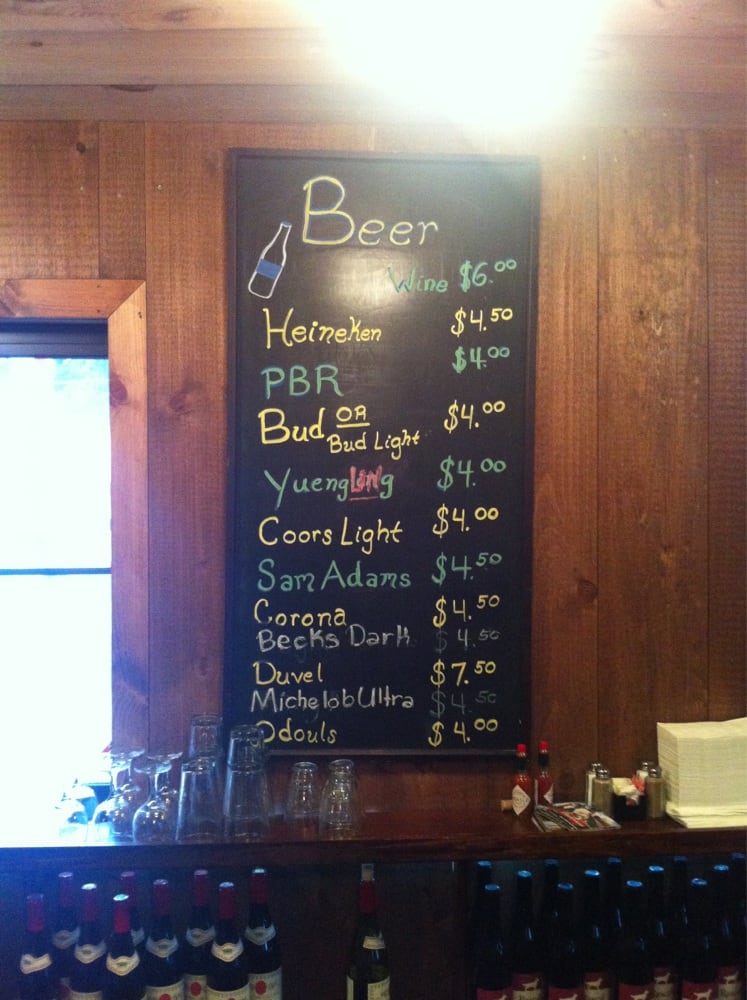 Beer
Wine $6.00
Heineken $4.50
PBR $4.00
Bud OR Bud Light $4.00
Yuengling $4.00
Coors Light $4.00
Sam Adams $4.50
Corona $4.50
Becks Dark $4.50
Duvel $7.50
Michelob Ultra $4.50
Odouls $4.00